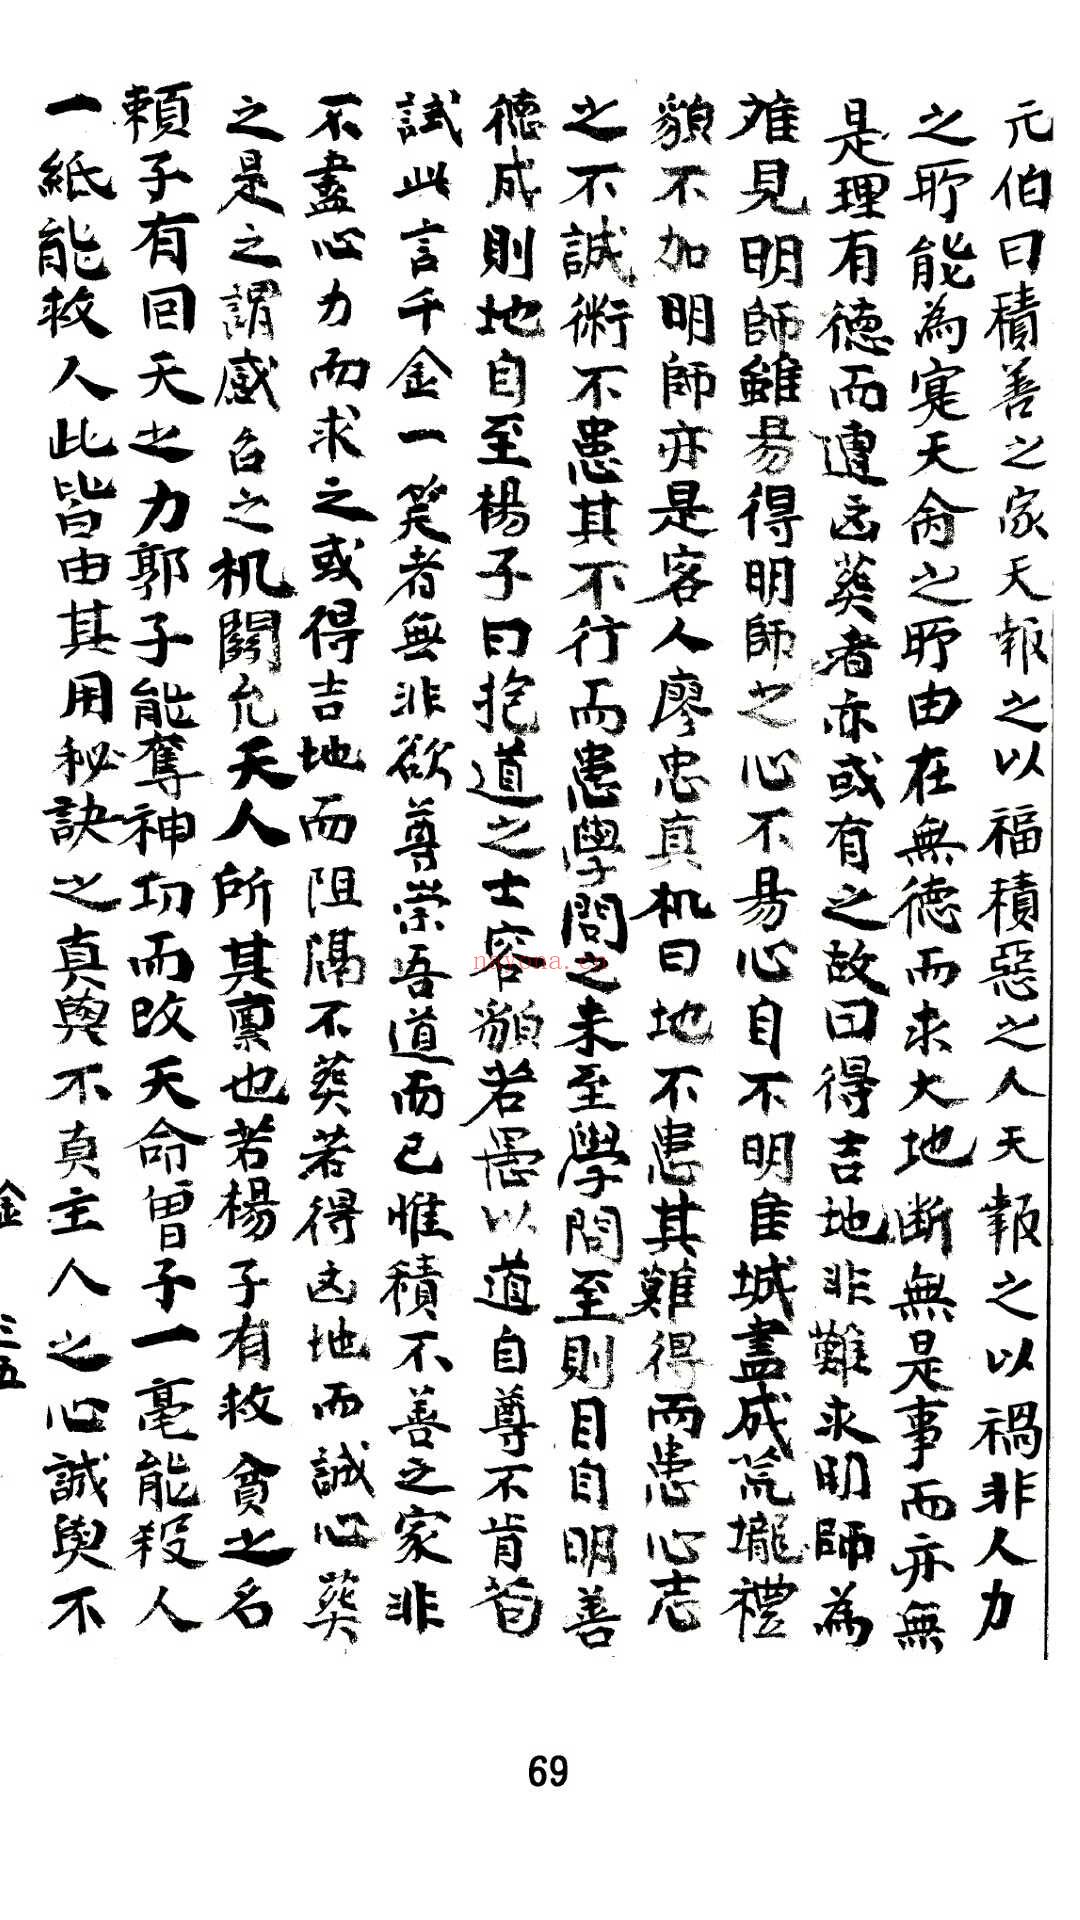 元伯曰積善之家天報之以福積惡之人天報之以禍非人力
之所能為寔天命之所由在無德而求大地斷無是事而亦無
是理有德而遭凶葵者亦或有之故曰得吉地非難求明師為
难見明師雖易得明師之心不易心自不明隹城盡成荒壠禮
貌不加明師亦是客人廖忠真机曰地不患其難得而患心志
之不誠術不患其不行而患學問之未至學問至則目自明善
德成則地自至楊子曰抱道之士容貌若愚以道自尊不肯苟
試此言千金一笑者無非欲尊崇吾道而已惟積不善之家非
不盡心力而求之或得吉地而阻隔不葵若得凶地而誠心葵
之是之謂感召之机關允天人所其稟也若楊子有救貧之名
賴子有回天之力郭子能奪神切而改天命曾子一毫能殺人
一紙能救人此皆由其用秘訣之真與不真主人之心誠與不
金
三五
69
nayona.cn